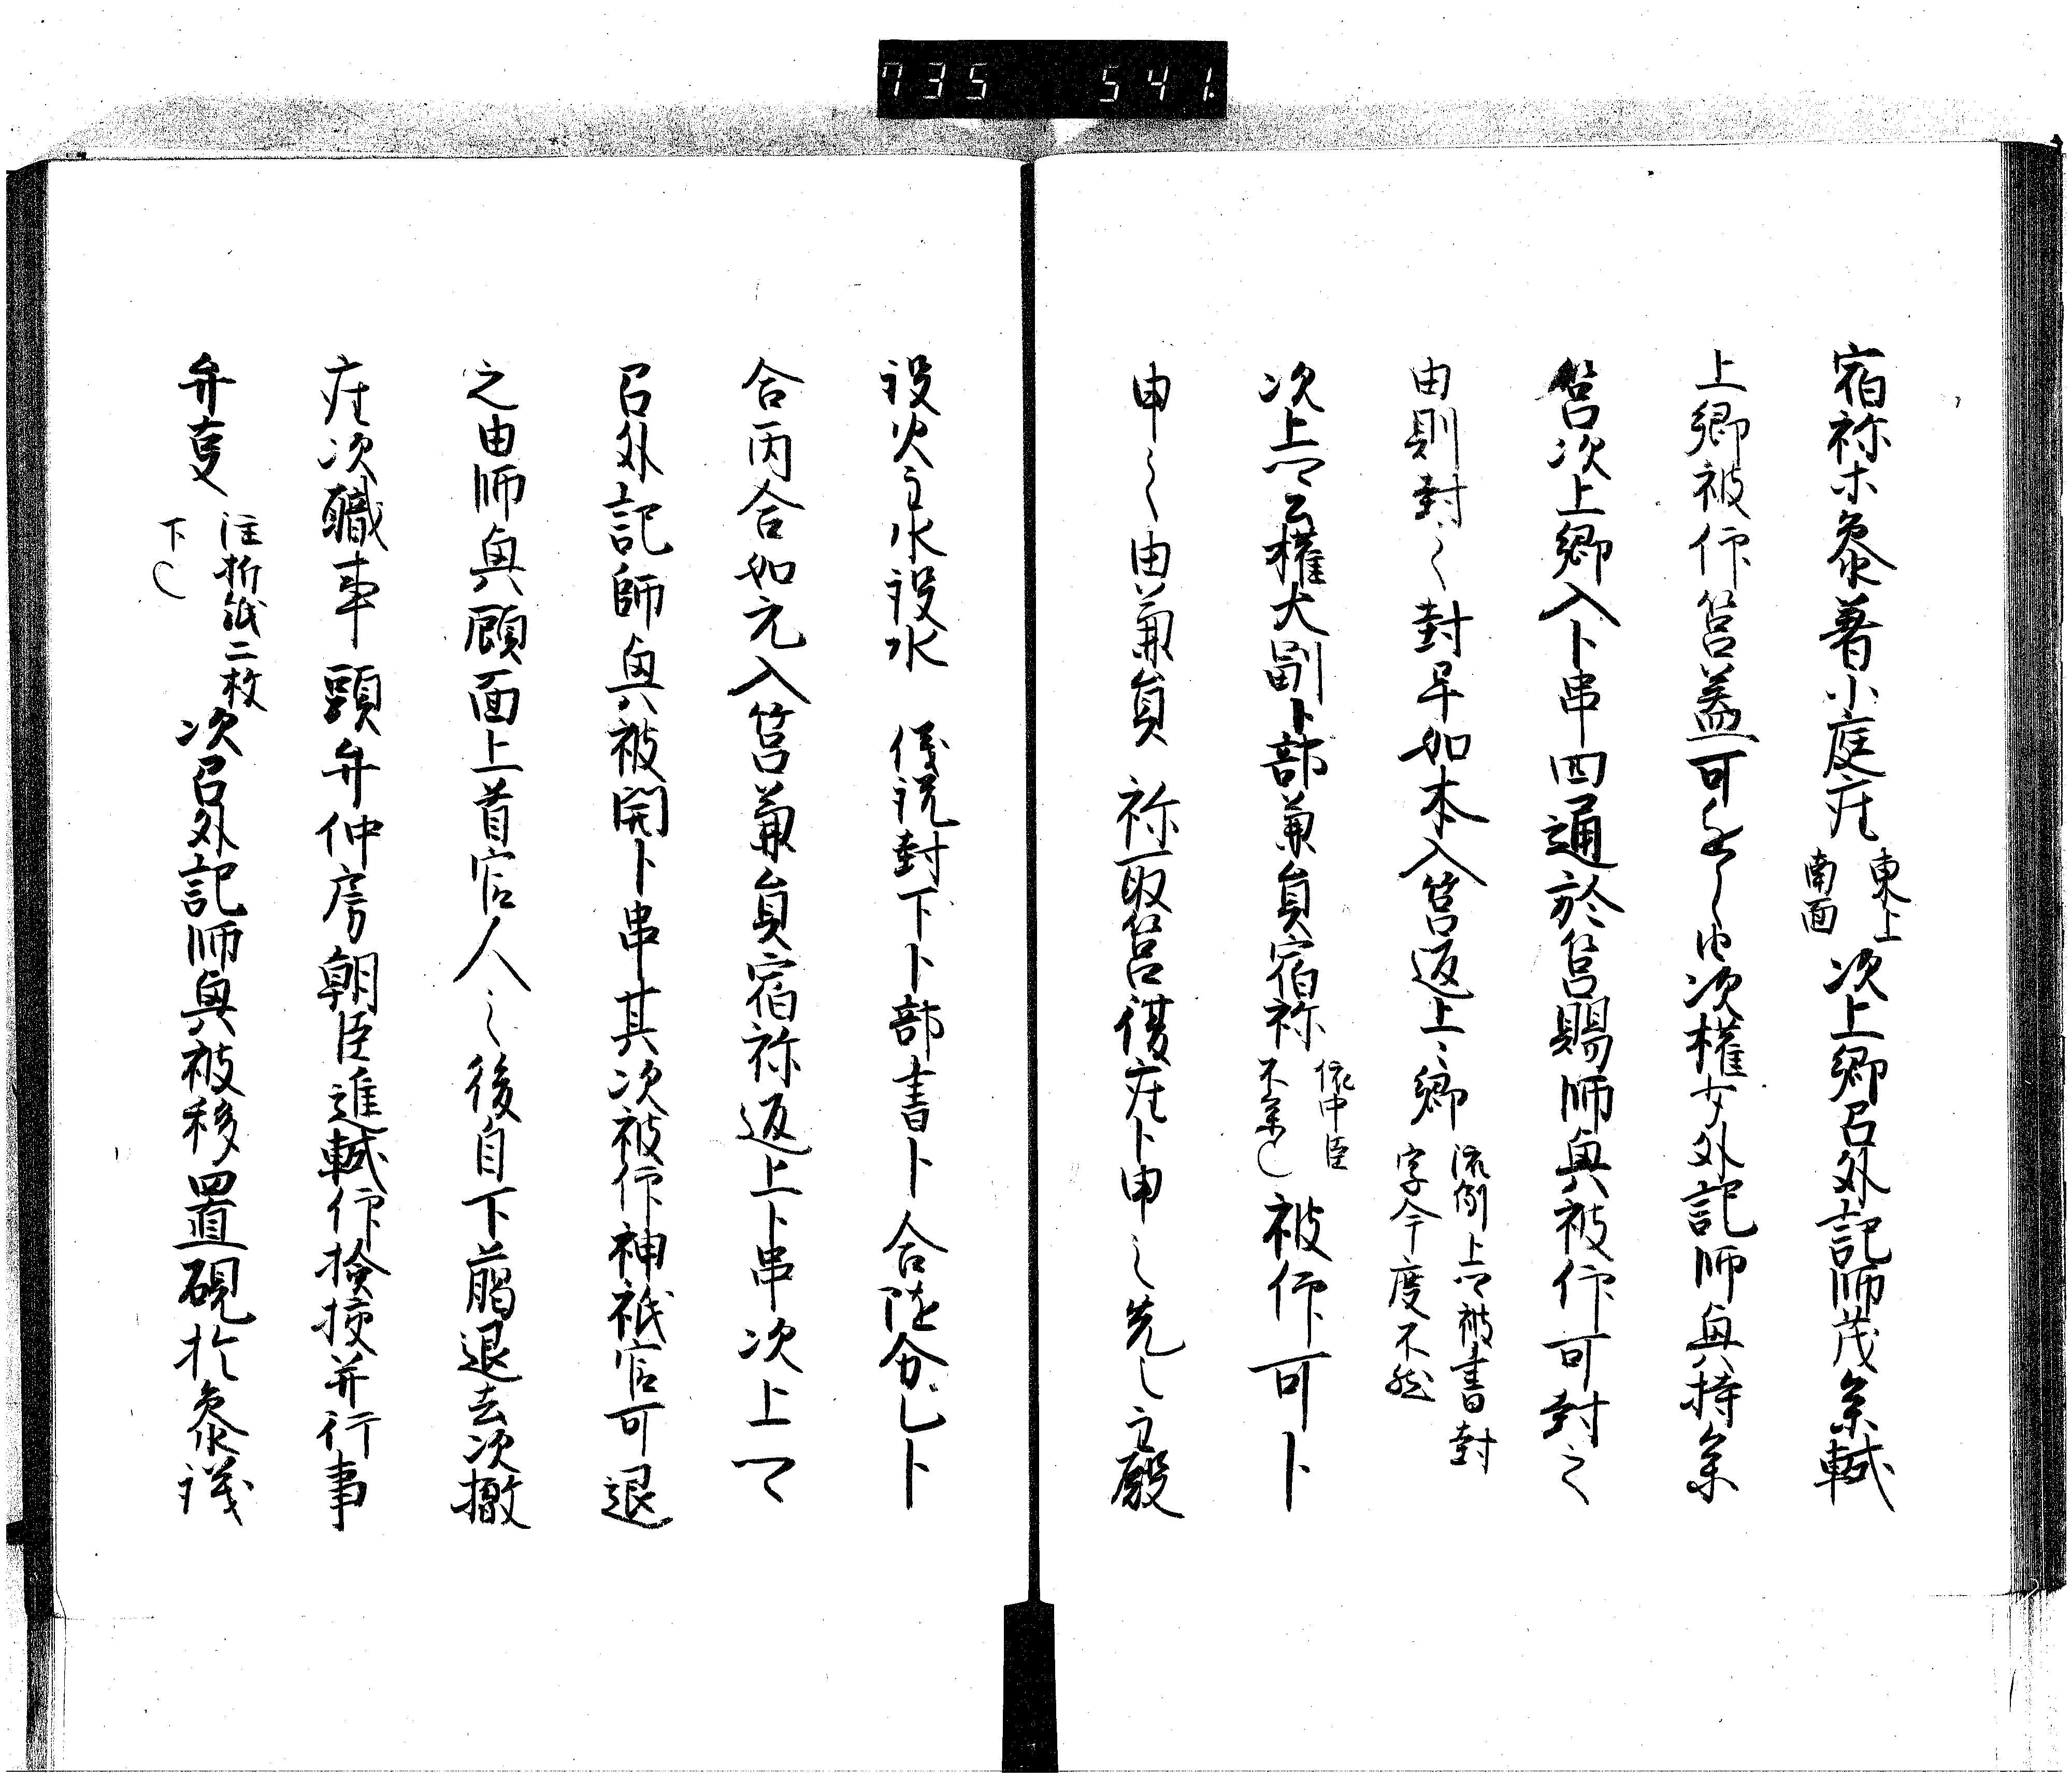 735 541.
宿祢等参著小庭座
東上
南面
次上卿召外記師茂参軾
上卿被仰筥蓋可
由次権少外記師興持参
筥次上卿入卜串四通於筥賜師興被仰可封之
由則封〻封早如本入筥返上〻卿
流例上卿被書封
字今度不然
次上卿召権大副卜部兼員宿祢
依中臣
不参也
被仰可卜
申〻由兼員祢取筥復座卜申〻先主殿
設火主水設水
後説封下卜部書卜合
卜
合丙合如元入筥兼員宿祢返上卜串次上卿
召外記師興被開卜串其次被仰神祇官可退
之由師興顧面上首官人〻後自下臈退去次撤
座次職事頭弁仲房朝臣進軾仰検校并行事
弁事
注折紙二枚
下之
次召外記師興被移置硯於参議